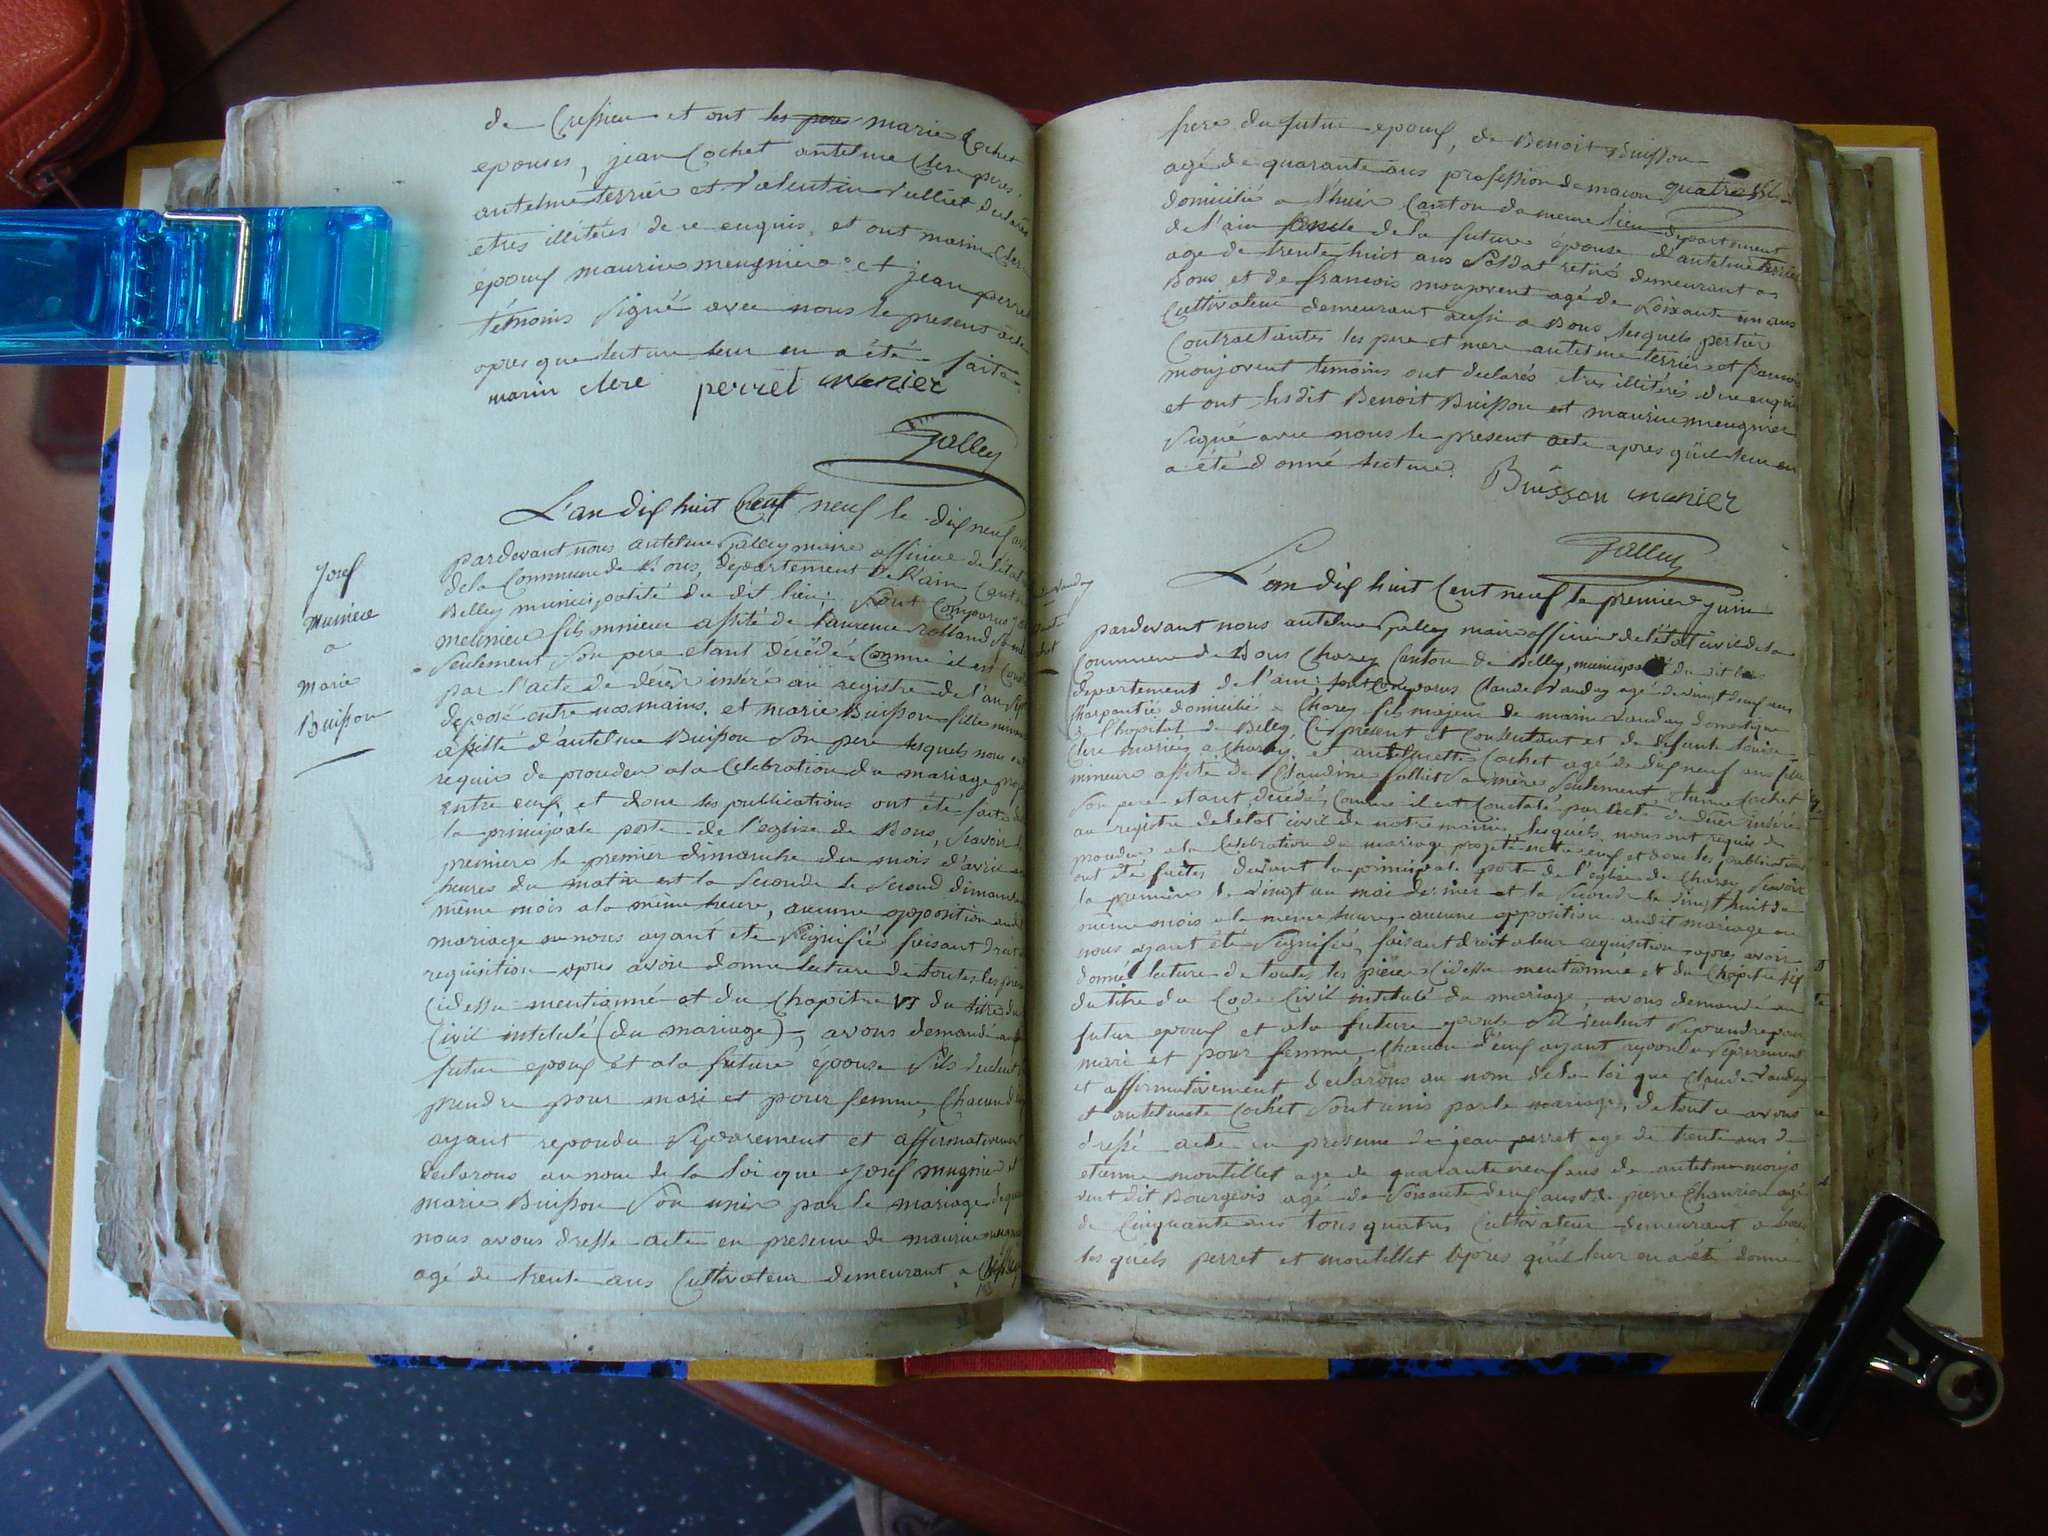 de Cressieu et ont les peres marie Cochet
epouses, jean Cochet antelme Clerc peres
antelme terrier et Valentin Vulliet declarés
etres illiterés de ce enquis, et ont marin Clerc
époux maurice meugnier et jean perret
témoins signé avec nous le present acte
apres que lecture leur en a été faite
marin clerc perret munier
Galley
L'an dix huit Cent neuf le dix neuf
pardevant nous antelme Galley maire officier de l'état
de la Commune de Bons, departement de l'ain Canton
Belley municipalité du dit lieu; sont Comparus
meunier fils mineur assité de Laurence rolland sa
seulement son pere etant décédé Comme il est
par l'acte de décès inséré au registre de l'an
déposé entre nos mains. et marie Buisson fille mineure
assitté d'antelme Buisson son pere lesquels nous ont
requis de proceder a la Celebration du mariage
entre eux, et dont les publications ont été faites
la principale porte de l'eglise de Bons, scavoir
premiere le premier dimanche du mois d'avril
heures du matin et la seconde le second dimanche
même mois a la meme heure, aucune opposition
mariage ou nous ayant été signifié faisant droit
requisition apres avoir donné lecture de toutes les
Cidessu mentionné et du Chapitre VI du titre du
Civil intitulé (du mariage), avons demandé au
futur epoux et a la future epouse s'ils veulent
prendre pour mari et pour femme, chacun d'eux
ayant repondu separement et affirmativement
declarons au nom de la loi que josef mugnier et
marie Buisson son unis par le mariage de quoi
nous avons dressé acte en presence de maurice
agé de trente ans Cultivateur demeurant a
Josef
Munier
a
Marie
Buisson
frere du futur epoux, de Benoit Buisson
agé de quarante ans profession de macon quatre
domicilié a l'huis Canton du meme lieu departement
de l'ain de la future épouse d'antelme terrier
age de trente huit ans soldat retiré demeurant a
Bons et de francois monjovent agé de soixante un ans
Cultivateur demeurant aussi a Bons lesquels parties
Contractantes les pere et mere antelme terrier et francois
monjovent temoins ont declarés etres illiterés de ce enquis
et ont lesdit Benoit Buisson et maurice meugnier
signé avec nous le present acte apres qu'il leur en
a été donné lecture.
Buisson munier
Galley
L'an dix huit Cent neuf le premier juin
pardevant nous antelme Galley maire officier de l'état civil de la
Commune de Bons Chazey Canton de Belley, du dit lieu
departement de l'ain; sont Comparus Claude Vauday agé de vingt neuf ans
charpentié domicilié a Chazey fils majeur de marin Vauday domestique
a l'hopital de Belley, Ci present et Consentant et de defunte
Clerc mariés a Chazey, et antelmette Cochet agé de dix neuf ans fille
mineure assité de Claudine Vulliet sa mère seulement, etienne Cochet
son pere etant décédé Comme il est Constaté par l'acte de décès inséré
au registre de l'état civil de notre mairie lesquels nous ont requis de
proceder a la celebration du mariage projeté entre eux et dont les publications
ont été faites devant la principale porte de l'eglise de Chazey scavoir
la premiere le vingt un mai dernier et la seconde le vingt huit du
même mois a la meme heure, aucune opposition audit mariage ou
nous ayant été signifié, faisant droit a leur requisition apres avoir
donné lecture de toutes les pieces Cidessu mentionné et du Chapitre six
du titre du Code Civil intitulé du mariage, avons demandé au
futur epoux et a la future epouse s'il veulent se prendre pour
mari et pour femme, chacun d'eux ayant repondu separement
et affirmativement declarons au nom de la loi que Claude Vauday
et antelmette Cochet sont unis par le mariage, de tout ce avons
dressé acte en presence de jean perret age de trente ans de
etienne montillet age de quarante neuf ans de antelme monjo
vent dit Bourgeois agé de soixante deux ans et de pierre Chanrion agé
de Cinquante ans tous quatres Cultivateur demeurant a Bons
lesquels perret et montillet apres qu'il leur en a été donné